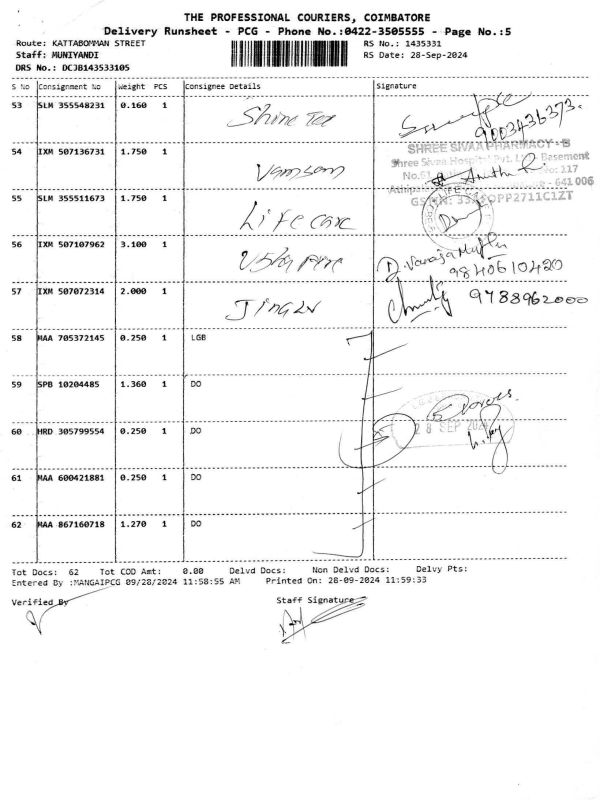 THE PROFESSIONAL COURIERS, COIMBATORE
Delivery Runsheet - PCG - Phone No.:0422-3505555 - Page No.:5
Route: KATTABOMMAN STREET RS No.: 1435331
Staff: MUNIYANDI RS Date: 28-Sep-2024
DRS No.: DCJB143533105
S No Consignment No Weight PCS Consignee Details Signature
53 SLM 355548231 0.160 1
9003436373.
SHREE SIVAA PHARMACY - B
Shree Sivaa Hospital Pvt. Ltd., Basement
54 IXM 507136731 1.750 1 Vamsam
- 641 006
55 SLM 355511673 1.750 1 Life care
56 IXM 507107962 3.100 1
9840610420
57 IXM 507072314 2.000 1
9788962000
58 MAA 705372145 0.250 1 LGB
59 SPB 10204485 1.360 1 DO
28 SEP 2024
60 HRD 305799554 0.250 1 DO
61 MAA 600421881 0.250 1 DO
62 MAA 867160718 1.270 1 DO
Tot Docs: 62 Tot COD Amt: 0.00 Delvd Docs: Non Delvd Docs: Delvy Pts:
Entered By :MANGAIPCG 09/28/2024 11:58:55 AM Printed On: 28-09-2024 11:59:33
Verified By Staff Signature